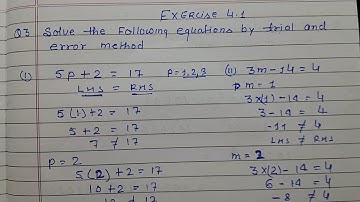 EXERCISE 4.1
Q3 Solve the following equations by trial and
error method
(i) 5p + 2 = 17 P=1,2,3
LHS = RHS
5(1)+2 = 17
5 + 2 = 17
7 ≠ 17
P = 2
5(2)+2 = 17
10 + 2 = 17
12 ≠ 17
(ii) 3m - 14 = 4
m = 1
3×(1) - 14 = 4
3 - 14 = 4
-11 ≠ 4
LHS ≠ RHS
m = 2
3×(2) - 14 = 4
6 - 14 = 4
-8 ≠ 4